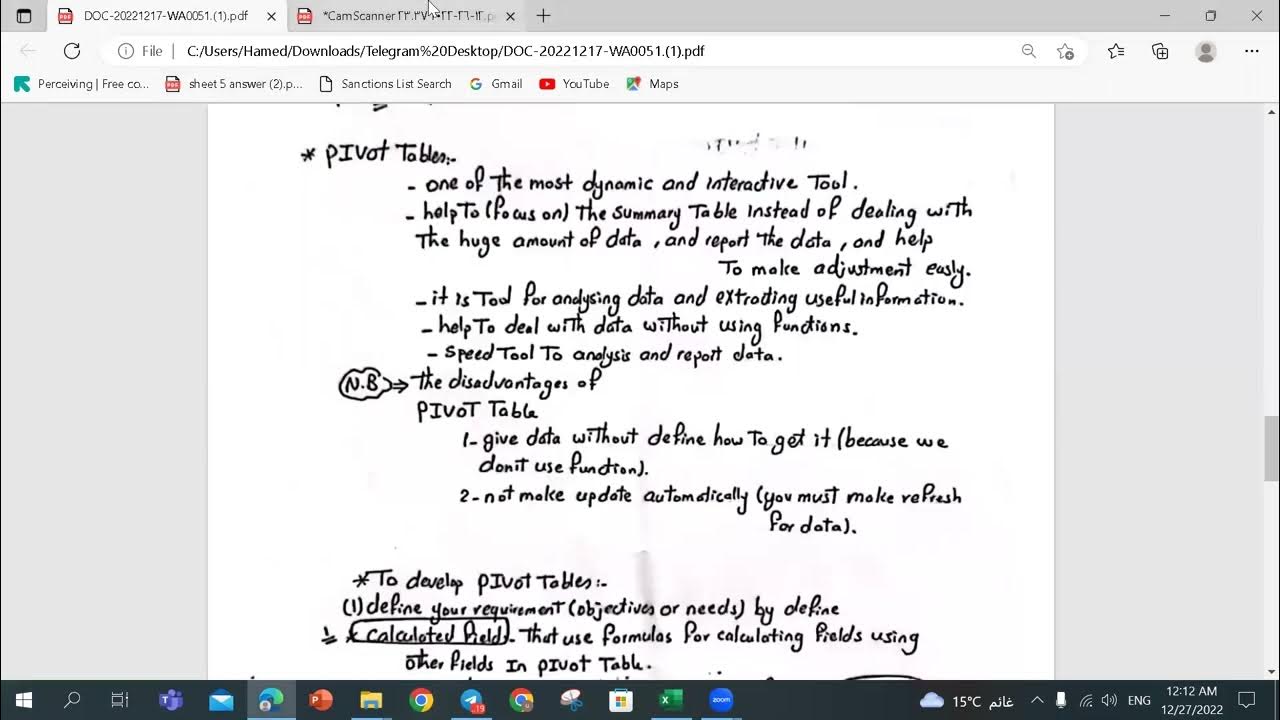 DOC-20221217-WA0051.(1).pdf
*CamScanner
File
C:/Users/Hamed/Downloads/Telegram%20Desktop/DOC-20221217-WA0051.(1).pdf
Perceiving | Free co...
sheet 5 answer (2).p...
Sanctions List Search
Gmail
YouTube
Maps
* PIVOT Tables:-
- one of The most dynamic and interactive Tool.
- help To (focus on) The summary Table instead of dealing with
The huge amount of data, and report the data, and help
To make adjustment easly.
- it is Tool for analysing data and extrading useful information.
- help To deal with data without using functions.
- speed Tool To analysis and report data.
N.B => The disadvantages of
PIVOT Table
1- give data without define how To get it (because we
don't use function).
2- not make update automatically (you must make refresh
for data).
* To develop PIVOT Tables:-
(1) define your requirement (objectives or needs) by define
* Calculated Field - That use formulas for calculating fields using
other fields In PIVOT Table.
19
zoom
15°C غائم
ENG
12:12 AM
12/27/2022